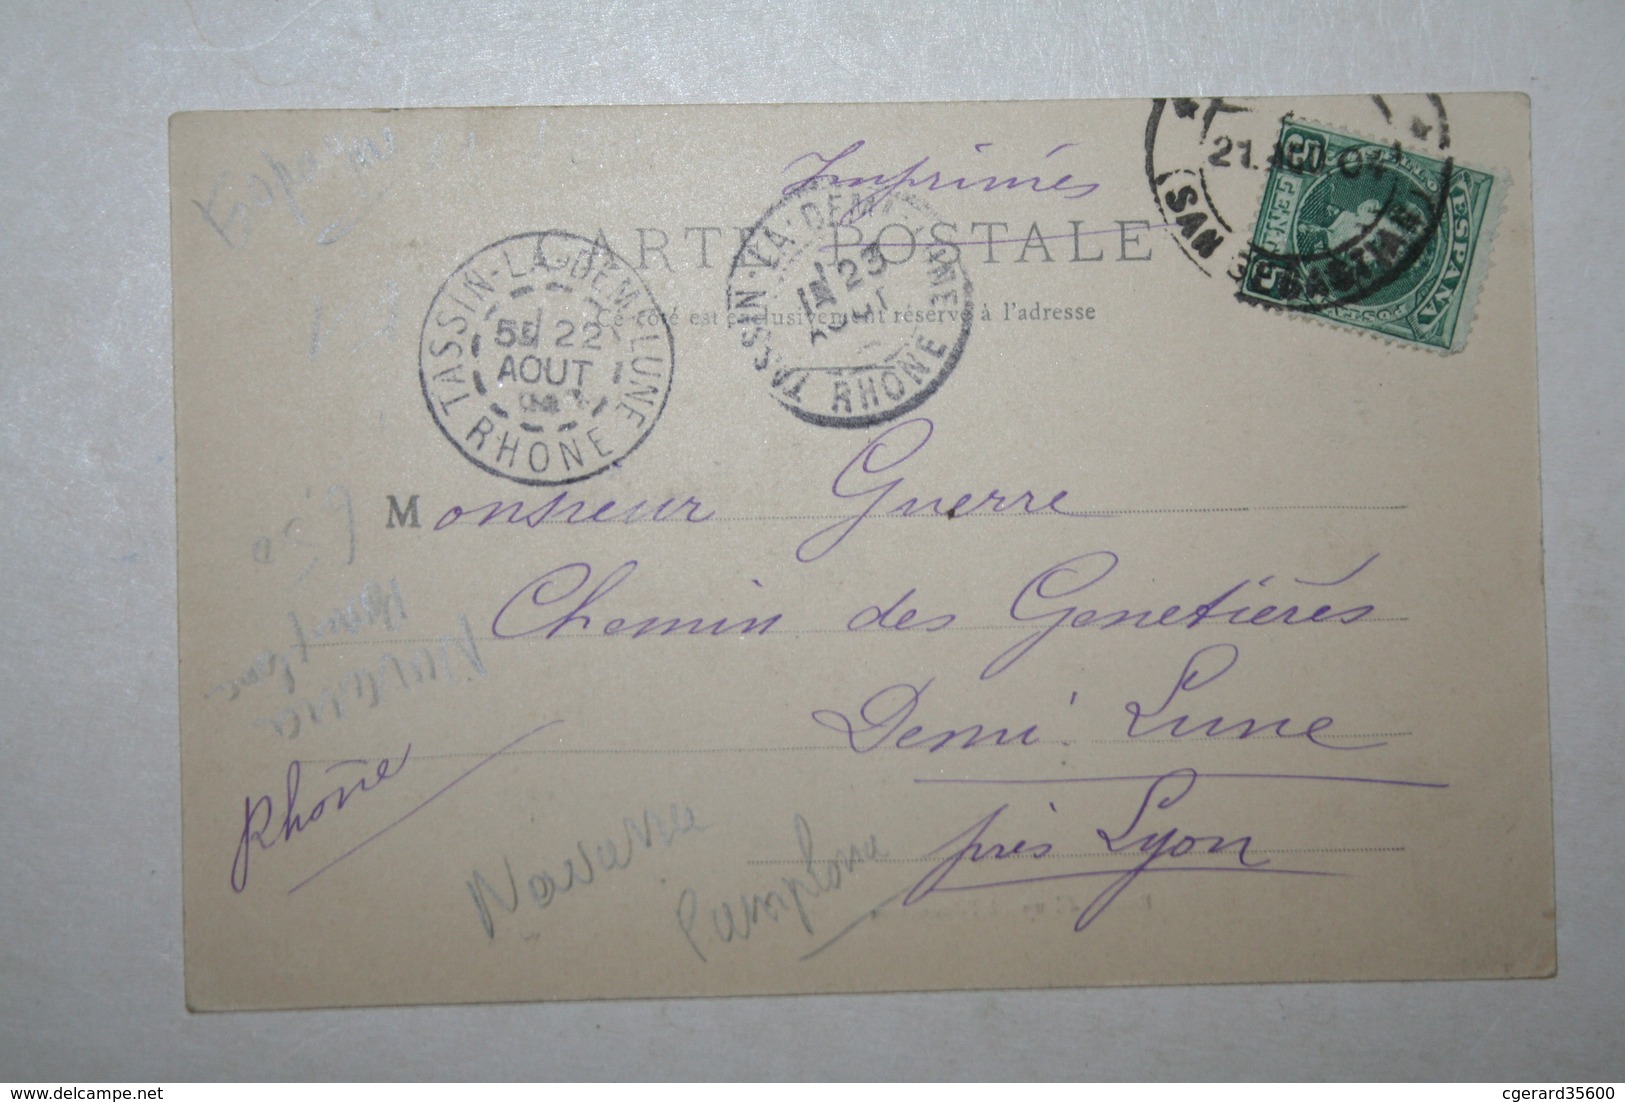 Espagne
Imprimés
CARTE POSTALE
Ce côté est exclusivement réservé à l'adresse
21.AGO.04
SAN SEBASTIAN
ESPAÑA
TASSIN-LA-DEMI-LUNE
5E 22
AOUT
RHONE
TASSIN-LA-DEMI-LUNE
23
RHONE
Monsieur Guerre
Chemin des Genetières
Demi Lune
près Lyon
Rhône
Navarre
Pamplona
delcampe.net
cgerard35600